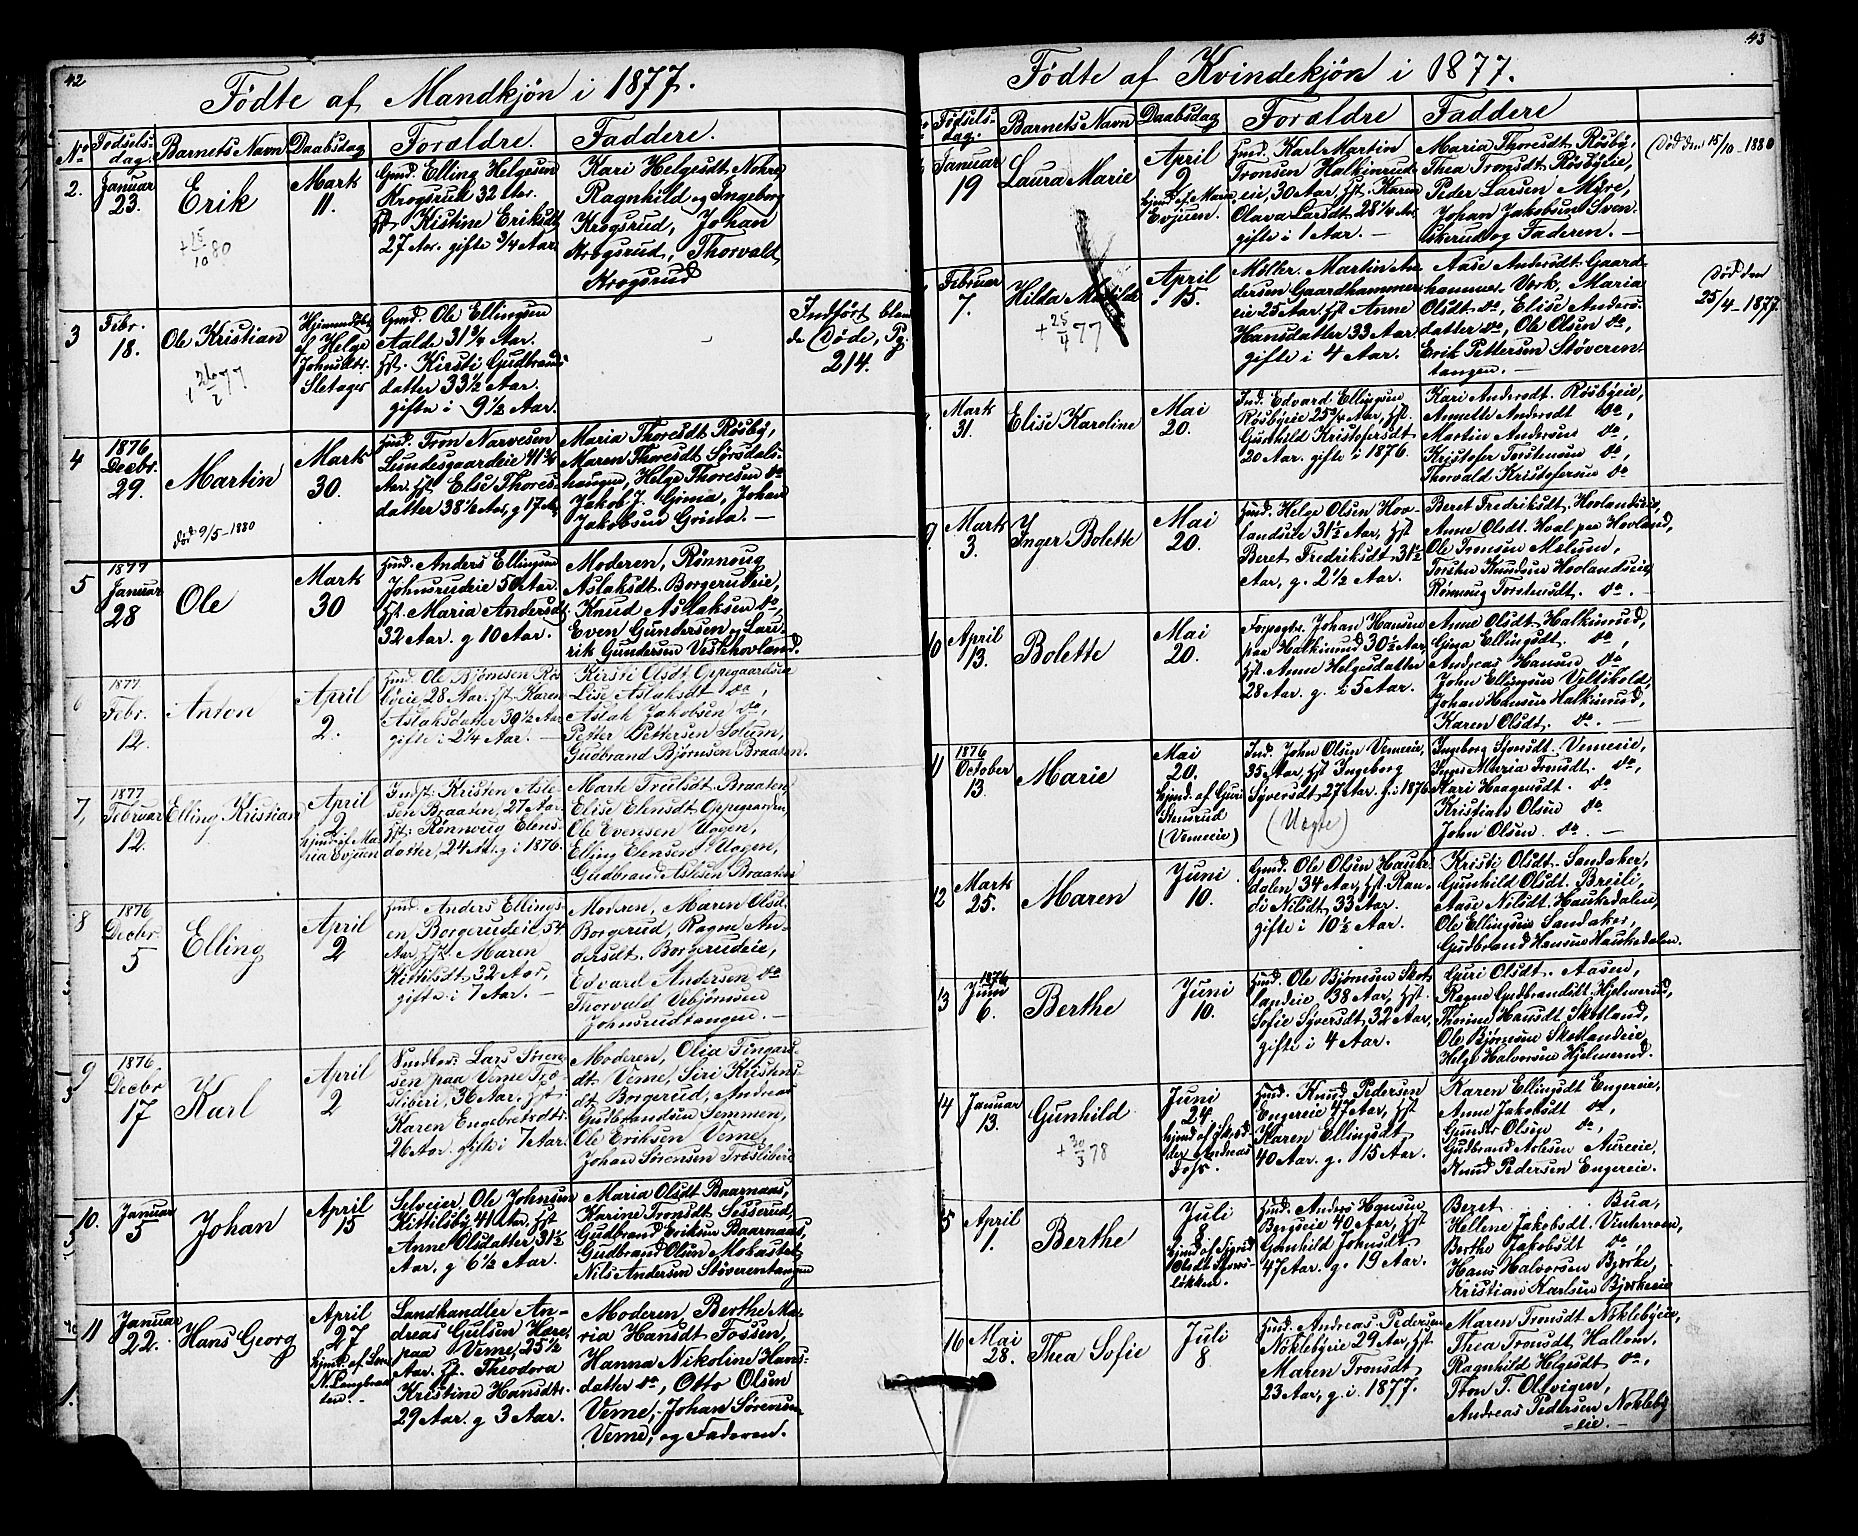 42
Fødte af Mandkjøn i 1877.
No Fødsels-dag. Barnets Navn Daabsdag Foraldre. Faddere.
2. Januar 23. Erik Mark 11.
+ 15/10 80
Gmd. Elling Helgesen
Krogsrud 32 Aar.
Hst. Kistine Eriksdt
27 Aar. gifte 3/4 Aar
Kari Helgesdt Nohre
Ragnhild og Ingeborg
Krogsrud, Johan
Krogsrud, Thorvald
Krogsrud
3 Febr. 18. Ole Kristian
26/2 77
Hjemmedøbt
af Helge
Johns.
Sletager
Gmd. Ole Ellingsen
Aalde 31 3/4 Aar.
Hst. Kirsti Gudbrands
datter 33 1/2 Aar.
gifte i 9 1/2 Aar.
Indført blan
de Døde, Pg.
214.
4 1876 Decbr. 29. Martin Mark 30.
død 9/5-1880
Hmd. Tron Narvesen
Lundesgaardeie 41 3/4
Aar. Hst. Else Thores-
datter 38 1/2 Aar, g 17 Aar
Maria Thoresdt Røsby,
Maren Thoresdt Sørsdals-
haugen, Helge Thoresen do
Jakob J. Grina, Johan
Jakobsen Grina. —
5 1877 Januar 28 Ole Mark 30
Hmd. Anders Ellingsen
Johnsrudeie 50 Aar.
Hst. Maria Andersdt
32 Aar. g 10 Aar.
Moderen, Rønnoug
Aslaksdt. Borgerudeie,
Knud Aslaksen do,
Even Gundersen og Lau-
rik Gundersen Vestehovland.
6 1877 Febr. 12. Anton April 2.
Hmd. Ole Bjørnsen Røs
byeie 28 Aar. Hst. Karen
Aslaksdatter 30 1/2 Aar
gifte i 2 1/4 Aar. —
Kirsti Olsdt Oppegaardseie
Lise Aslaksdt do,
Aslak Jakobsen do,
Petter Pettersen Solum,
Gudbrand Bjørnsen Braaten.
7, 1877 Februar 12. Elling Kristian April 2
hjmd. af Ma
ria Evjuen
Indst. Kristen Asle-
sen Braaten, 27 Aar.
Hst. Rønnveig Elens-
datter, 24 Aar, g i 1876.
Marte Trulsdt Braaten,
Elise Elensdt Oppegarden,
Ole Evensen Uagen,
Elling Elensen Uagen,
Gudbrand Aslesen Braaten
8 1876 Decbr 5 Elling April 2
Hmd. Anders Ellings-
en Borgerudeie, 54
Aar, Hst. Maren
Kittilsdt 32 Aar,
gifte i 7 Aar. —
Moderen, Maren Olsd.
Borgerud, Ragne An-
dersdt. Borgerudeie,
Edvard Andersen do
Thorvald Vebjørnsen
Johnsrudtangen. —
9 1876 Decbr 17 Karl April 2
Lars Søren-
sen paa Veme Træ-
sliberi, 36 Aar, Hst.
Karen Engebretsdtr.
26 Aar. gifte i 7 Aar.
Moderen, Olia Fingars-
dt Veme, Siri Kristens
dt Borgerud, Andreas
Gudbrandsen Semmen,
Ole Eriksen Veme,
Johan Sørensen Træsliberi
10. Januar 5 Johan April 15
Selveier Ole Johnsen
Kittilsby 41 Aar. Hst
Anne Olsdatter 31 1/2
Aar, g 6 1/2 Aar.
Maria Olsdt Baarnaas,
Karine Tronsdt Sesserud,
Gudbrand Eriksen Baarnaas,
Gudbrand Olsen Mokastet,
Nils Andersen Støverentangen
11 Januar 22. Hans Georg April 27
hjmd. af Lone
N. Langbraa
ten. -
Landhandler An-
dreas Gulsen Hære
paa Veme, 25 1/2
Aar. Hst. Theodora
Kristine Hansdtr.
29 Aar. g 3 Aar.
Moderen, Berthe Ma-
ria Hansdt Fossen,
Hanna Nikoline Hans-
datter do, Otto Olsen
Veme, Johan Sørensen
Veme, og Faderen.
43
Fødte af Kvindekjøn i 1877.
Fødsels-dag. Barnets Navn Daabsdag Foraldre Faddere
Januar 19 Laura Marie April 2
hjmd. af Maria
Evjuen.
Hmd. Karl Martin
Tronsen Halkinrud-
eie, 30 Aar, Hst. Karen
Olava Larsdt. 28 1/4 Aar.
gifte i 1 Aar. —
Maria Thoresdt. Røsby,
Thea Tronsdt Røsbyeie,
Peder Larsen Myre,
Johan Jakobsen Sven-
skerud og Faderen. —
Død den 15/10-1880
Februar 7. Hilda Matilde April 15.
+ 25/4 77
Møller. Martin An-
dersen Gaardhammer-
eie 25 Aar. Hst Anne
Hansdatter 33 Aar.
gifte i 4 Aar.
Aase Andersdt. Gaard-
hammer. Vork, Maria
Olsdt. do, Elise Anders-
datter do, Ole Olsen do,
Erik Pettersen Støveren-
tangen. —
Død den
25/4-1877.
Mark 31. Elise Karoline Mai 20.
Ind. Edvard Ellingsen
Røsbyeie 25 3/4 Aar, Hst.
Gunhild Kristofersdt
20 Aar. gifte i 1876.
Kari Andersdt. Røsbyeie,
Annette Andersdt do,
Martin Andersen do,
Kristofer Torstensen do,
Thorvald Kristofersen do
9. Mark 3. Inger Bolette Mai 20.
Hmd. Helge Olsen Hov-
landseie 31 1/2 Aar, Hst
Beret Fredriksdt. 31 1/2
Aar, g. 2 1/2 Aar.
Beret Fredriksdt, Hovlandseie,
Anne Olsdt. Hval paa Hovland,
Ole Tronsen Melum,
Torsten Knudsen Hovlandseie,
Rønnoug Torstensdt. do. —
10 April 13. Bolette Mai 20.
Forpagter. Johan Hansen
paa Halkinrud 30 1/2 Aar,
Hst. Anne Helgesdatter
28 Aar. g. i 5 Aar.
Anne Olsdt. Halkinrud,
Gina Ellingsdt. do,
Andreas Hansen do
John Ellingsen Veltikold,
Johan Hansen Halkinrud,
Karen Olsdt. do. —
11 1876 October 13. Marie Mai 20.
hjmd. af Guri
Stensrud
(Vemeie)
Ind. John Olsen Vemeeie,
35 Aar, Hst Ingeborg
Syversdt. 27 Aar. g. i 1876
(Uegte)
Ingeborg Simsdt. Vemeeie,
Inger Maria Tronsdt. do,
Kari Haagensdt. do
Kristian Olsen do
John Olsen. do. —
12 Mark 25. Maren Juni 10.
Gmd. Ole Olsen Hauke-
dalen 34 Aar, Hst. Ran-
di Nilsdt. 33 Aar.
gifte i 10 1/2 Aar.
Kristi Olsdt. Sandaker,
Gunhild Olsdt. Breili,
Aase Nilsdt. Haukedalen,
Ole Ellingsen Sandaker,
Gudbrand Hansen Haukedalen.
13 1876 Juni 6. Berthe Juni 10.
Hmd. Ole Bjørnsen Skot-
landeie 38 Aar, Hst.
Sofie Syversdt. 32 Aar,
gifte i 4 Aar.
Guri Olsdt. Aasen,
Ragne Gudbrandsdt. Hjelmerud,
Thorine Hansdt. Skotland,
Ole Bjørnsen Skotlandeie,
Helge Halvorsen Hjelmerud.
14 Januar 13. Gunhild Juni 24
+ 30/3 78
Hmd. Knud Pedersen
Engereie 47 Aar, Hst
Karen Ellingsdt,
40 Aar. g. 15 Aar.
Karen Ellingsdt Engereie,
Anne Jakobsdt do,
Gunder Olsen do,
Gudbrand Aslesen Aureeie,
Knud Pedersen Engereie.
15 April 1. Berthe Juli 1
hjmd. af Sigrid
Olsdt. Stens-
løkken.
Hmd. Anders Hansen
Bergseie 40 Aar, Hst
Gunhild Johnsdt.
47 Aar. g. 19 Aar.
Beret . . . Bua,
Hellene Jakobsdt. Vinterroen,
Berthe Jakobsdt do,
Hans Halvorsen Bjørke,
Kristian Karlsen Bjørkeeie
16 Mai 28. Thea Sofie Juli 8
Hmd. Andreas Pedersen
Nøklebyeie 29 Aar, Hst.
Maren Tronsdt
23 Aar, g. i 1877.
Maren Tronsdt Nøklebyeie,
Thea Tronsdt Hallom,
Ragnhild Helgesdt do,
Tron T. Olfvigen,
Andreas Pedersen Nøkleby
=eie. —